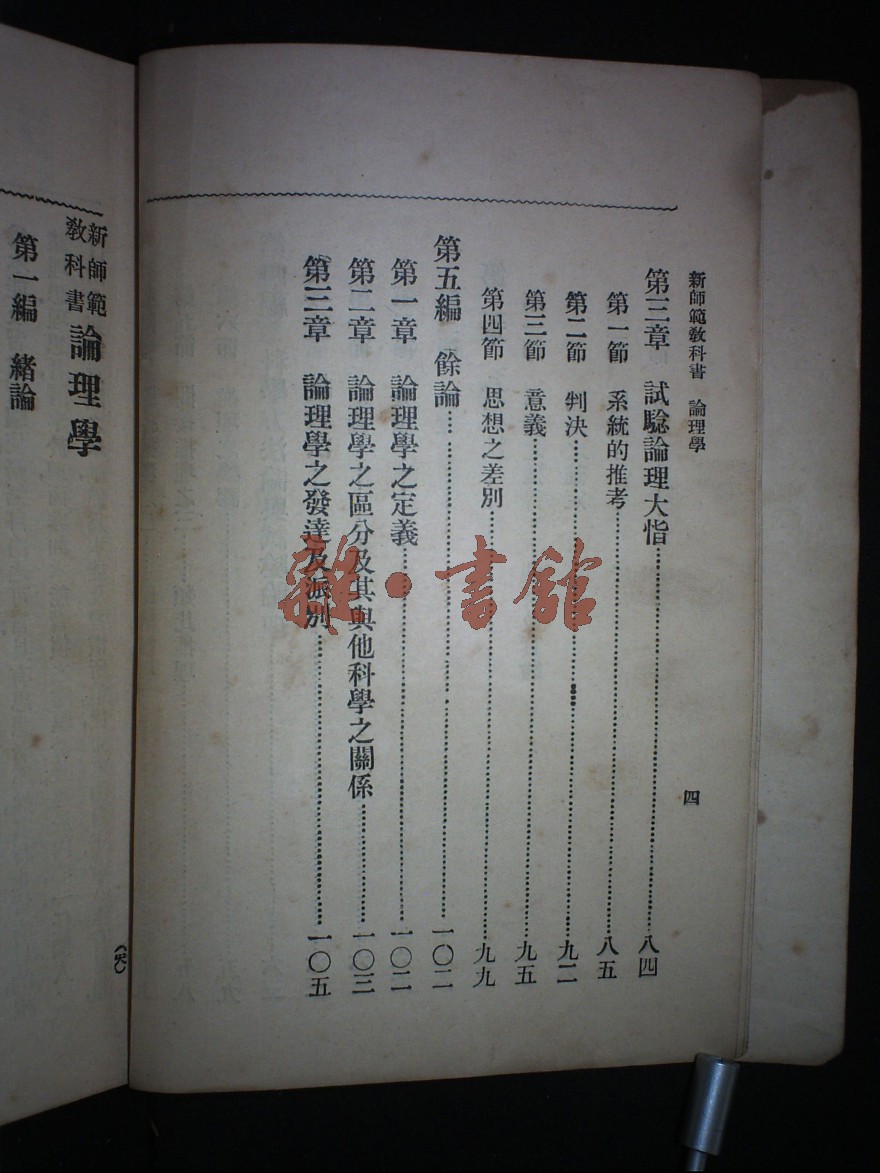 新師範教科書 論理學
四
第三章 試驗論理大恉……八四
第一節 系統的推考……八五
第二節 判決……九二
第三節 意義……九五
第四節 思想之差別……九九
第五編 餘論……一〇二
第一章 論理學之定義……一〇二
第二章 論理學之區分及其與他科學之關係……一〇三
第三章 論理學之發達及派別……一〇五
雜·書館
新師範
教科書
論理學
第一編 緒論